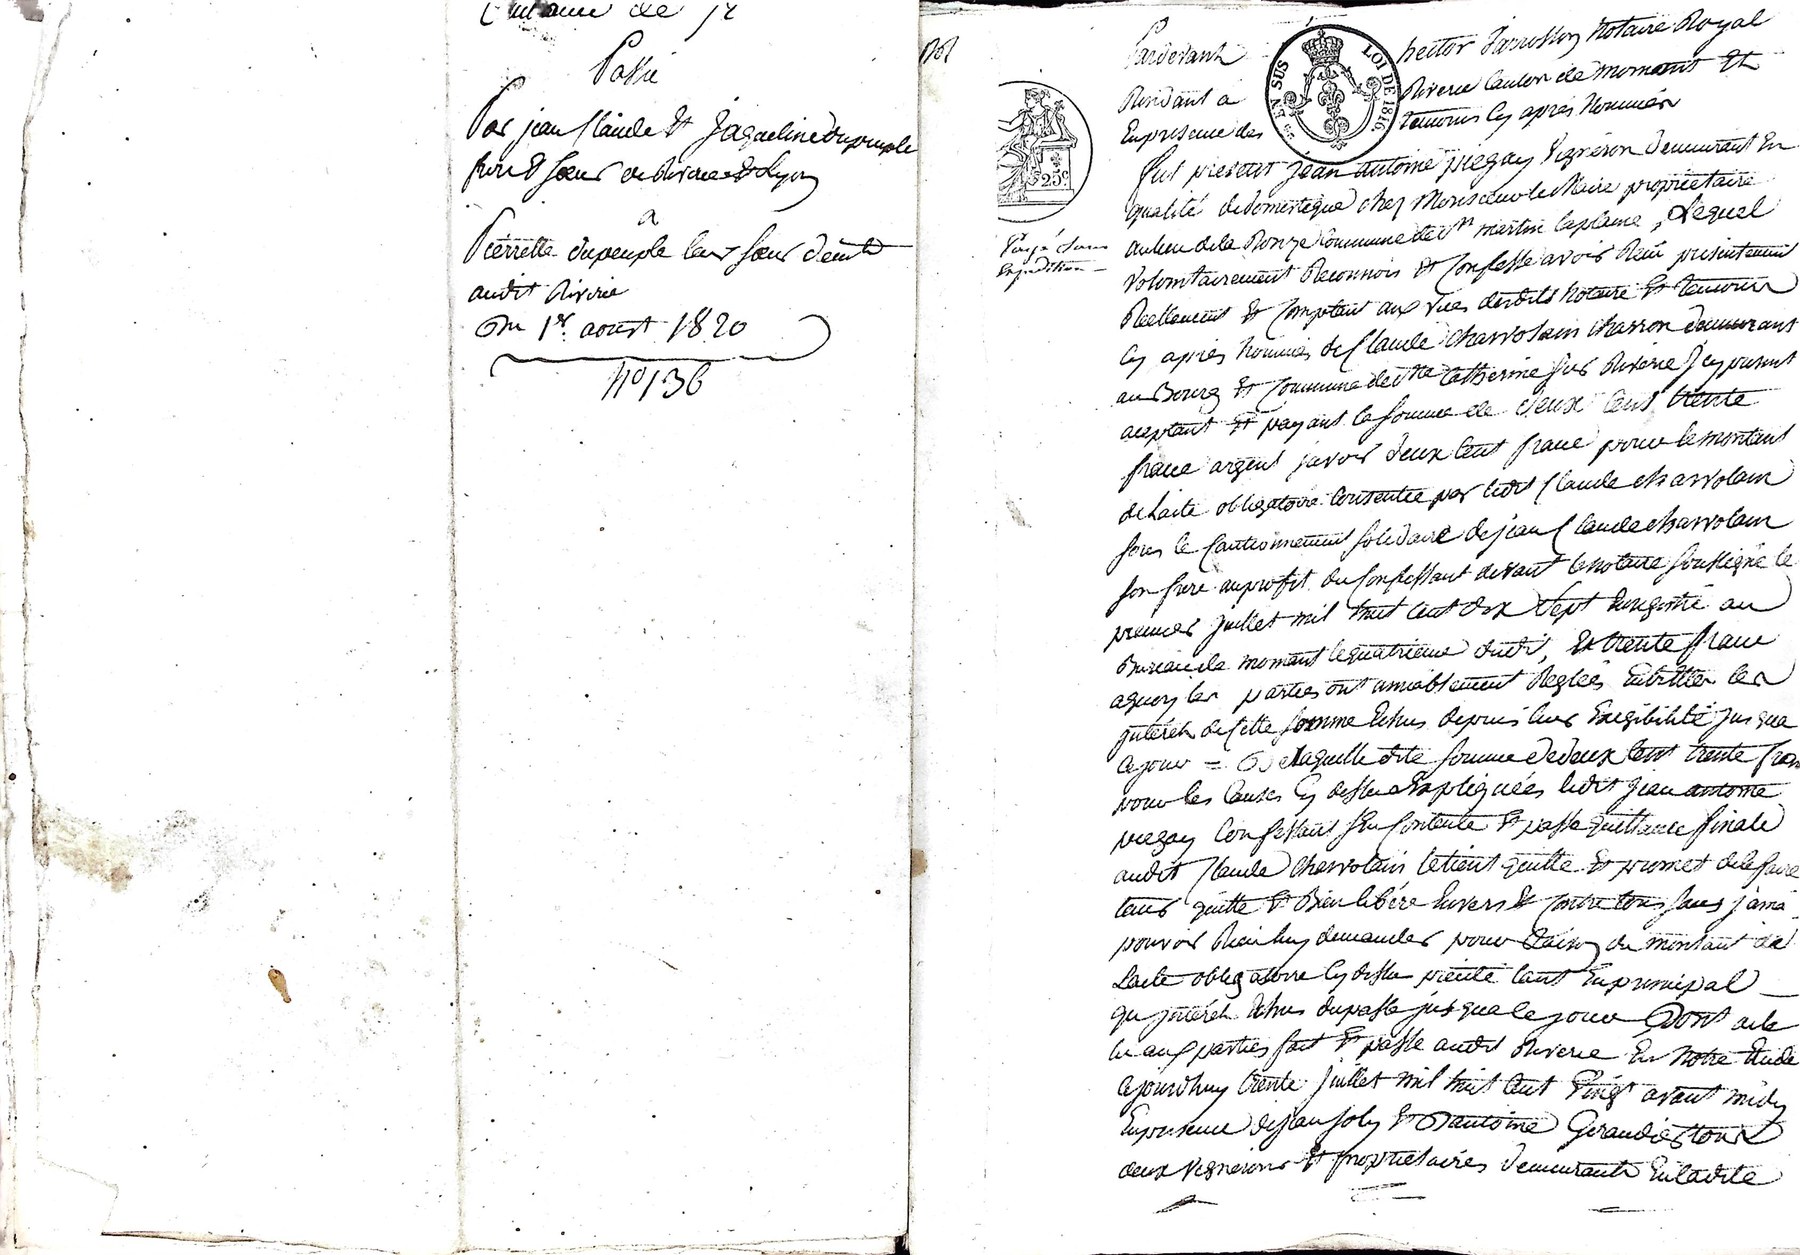 quittance de
Passé
Par jean Claude Et Jaqueline dupeuple
frere Et Sœur de Riverie et Lyon
a
Pierrette dupeuple leur sœur demt
audit Riverie
Du 1er. aoust 1820
n° 136
EN SUS
LOI DE 1816
25c
Purgé dans
Expedition
Pardevant hector Notaire Royal
Residant a Riverie Canton de mornant Et
En presence des temoins cy apres Nommés
fut present jean antoine piegay Vigneron demeurant En
qualité de domestique chez Monsieur le Maire proprietaire
au lieu de la Ronze Commune de St. martin laplaine, Lequel
Volontairement Reconnois Et Confesse avoir Reçu presentement
Reellement Et Comptant aux vues desdits Notaire Et temoins
cy après Nommés de Claude Charvolain charron demeurant
au Bourg Et Commune de Ste Catherine sur Riverie Icy present
aceptant Et payant la somme de deux Cent trente
franc argent savoir deux Cent franc pour le montant
de Lacte obligatoire Consentie par ledit Claude charvolain
sous le Cautionnement solidaire de jean Claude charvolain
son frere au profit du Confessant devant le notaire soussigné le
premier juillet mil huit Cent dix sept Enregistré au
Bureau de mornant le quatrieme dudit, Et trente franc
aquoy les parties ont amiablement Reglés Entr'Elles les
interêts de Cette somme Echus depuis leur Exigibilité jusqua
Ce jour = De laquelle dite somme de deux Cent trente franc
pour les Causes Cy dessus Expliquées ledit jean antoine
piegay Confessant sen Contente Et passe quittance finale
audit Claude charvolain le tient quitte Et promet de le faire
tenir quitte Et Bien libéré Envers Et Contre tous sans jamai
pouvoir Rien luy demander pour Raison du montant de
Lacte obligatoire Cy dessus tant En principal
qu'interêts Echus du passé jusqua Ce jour Dont acte
lu aux parties fait Et passé audit Riverie En Notre Etude
Cejourdhuy trente juillet mil huit Cent Vingt avant midy
En presence de jean joly Et D'antoine Geraudier tous
deux Vignerons Et proprietaires demeurants En ladite